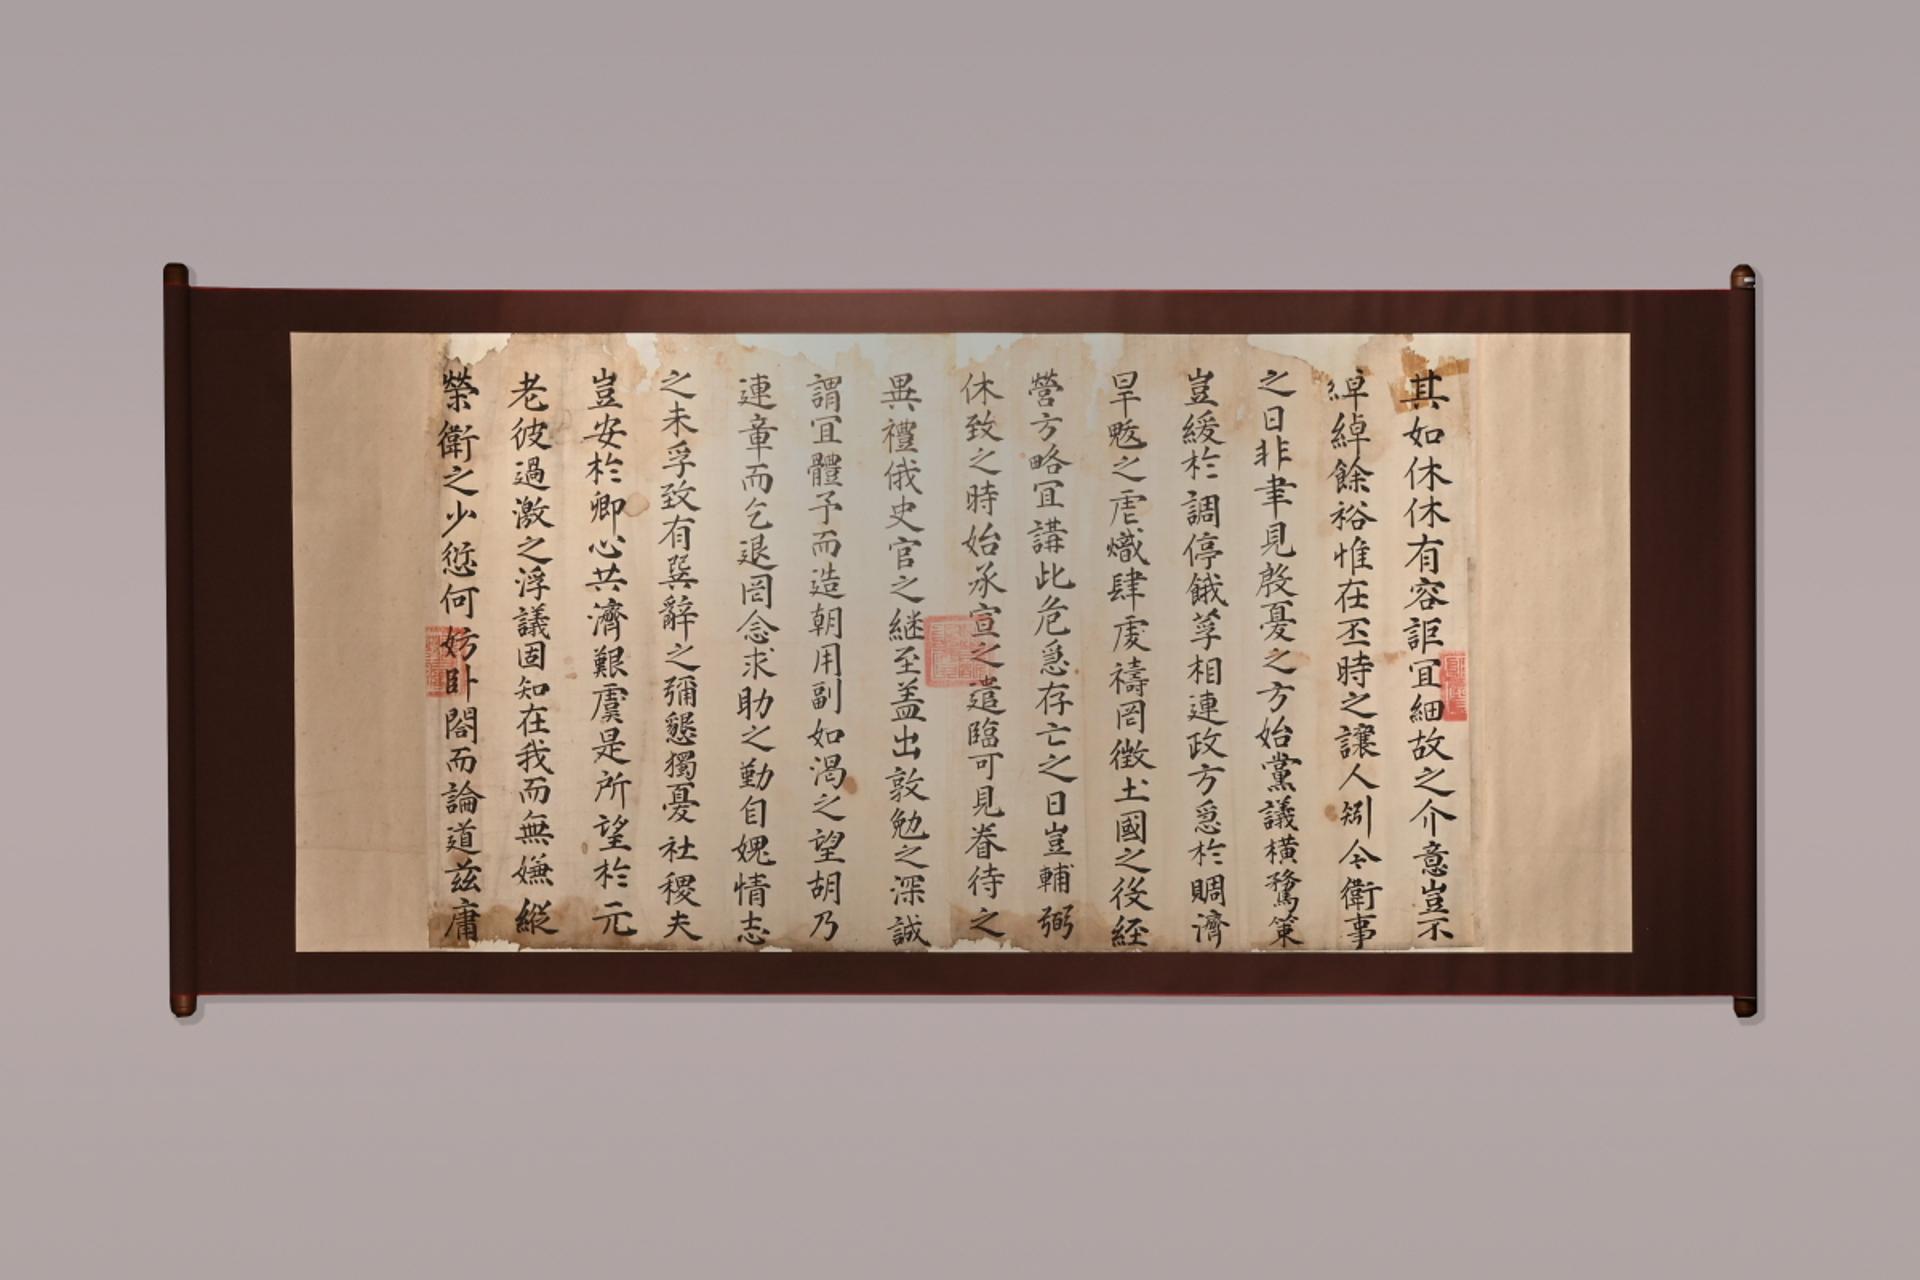 其如休休有容詎宜細故之介意豈不
綽綽餘裕惟在丕時之讓人矧今衛事
之日非聿見殷憂之方始黨議橫騖策
豈緩於調停餓莩相連政方急於賙濟
旱魃之虐熾肆虔禱罔徵土國之役經
營方略冝講此危急存亡之日豈輔弼
休致之時始承宣之遣臨可見眷待之
異禮俄史官之継至盖出敦勉之深誠
謂冝體予而造朝用副如渴之望胡乃
連章而乞退罔念求助之勤自媿情志
之未孚致有巽辭之彌懇獨憂社稷夫
豈安於卿心共濟艱虞是所望於元
老彼過激之浮議固知在我而無嫌縱
榮衛之少愆何妨卧閤而論道茲庸